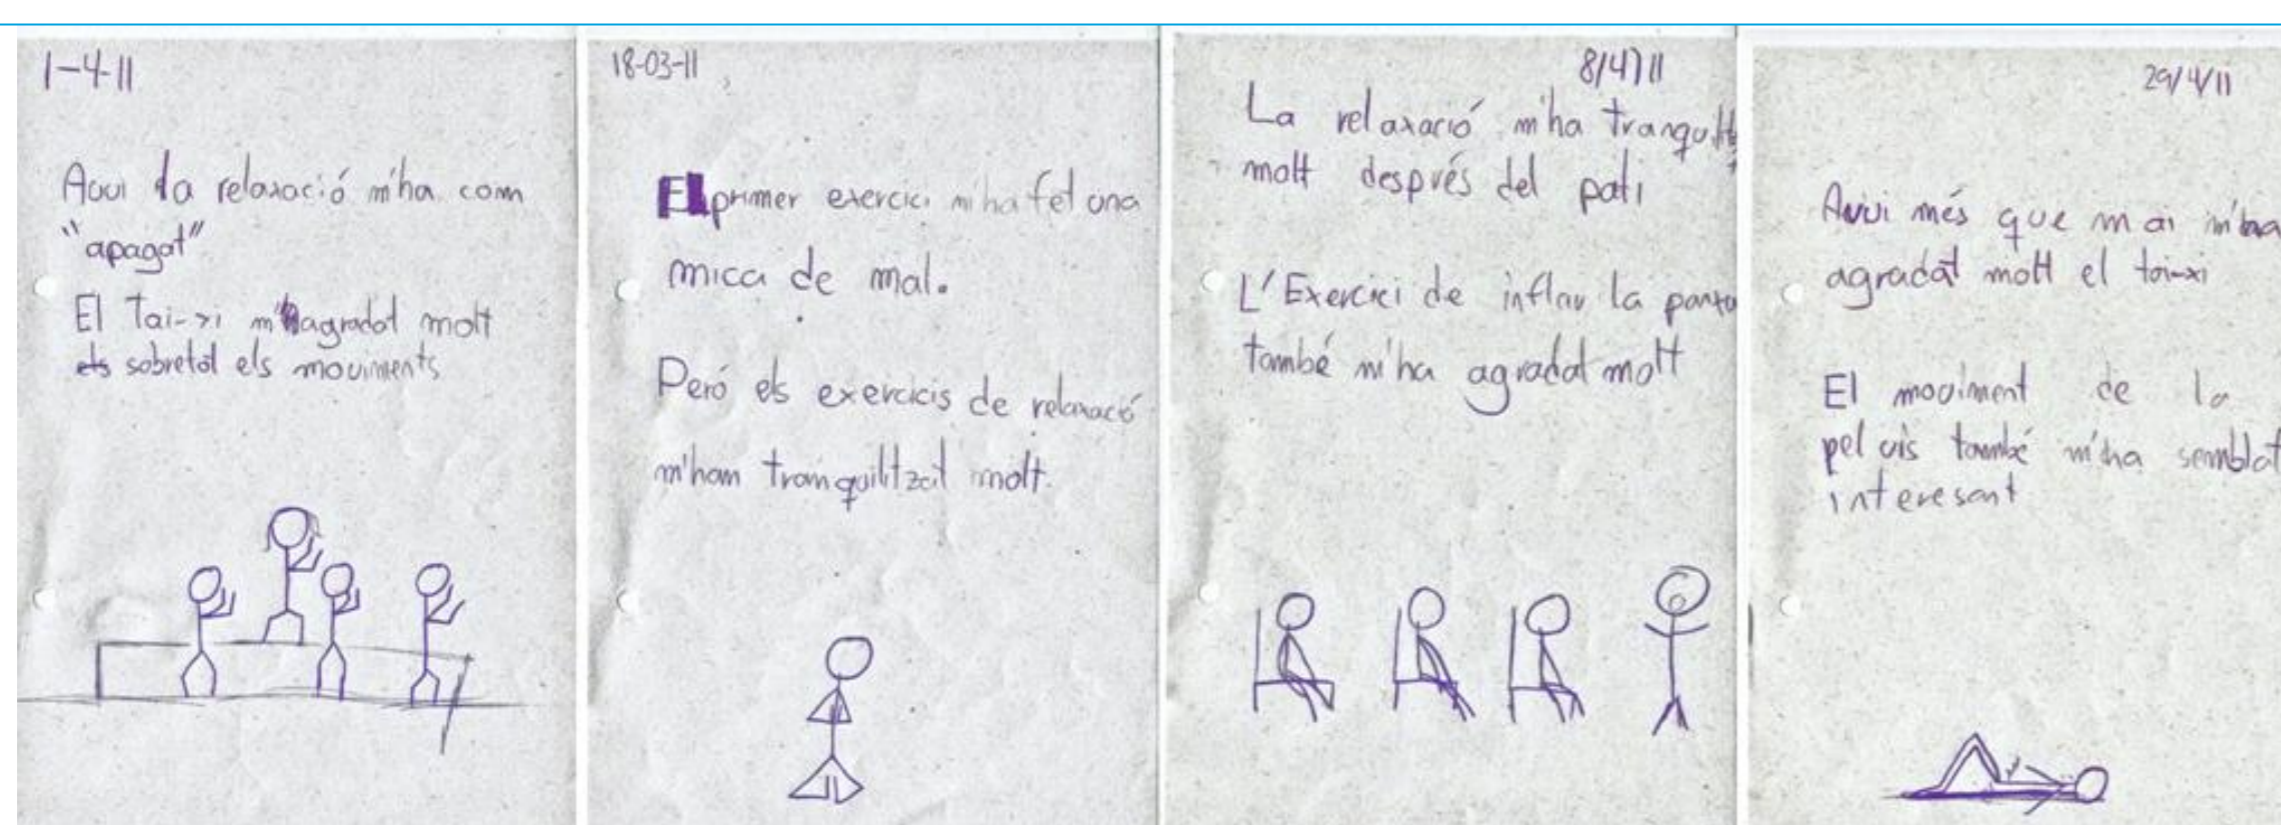 1-4-11
Avui la relaxació m'ha com
"apagat"
El Tai-xi m'hagradat molt
els sobretot els moviments
18-03-11
El primer exercici m'ha fet una
mica de mal.
Peró els exercicis de relaxació
m'han tranquilitzat molt.
8/4/11
La relaxació m'ha
molt després del pati
L'Exercici de inflar la
també m'ha agradat molt
29/4/11
Avui més que mai m'ha
agradat molt el tai-xi
El moviment de la
pelvis també m'ha semblat
interesant